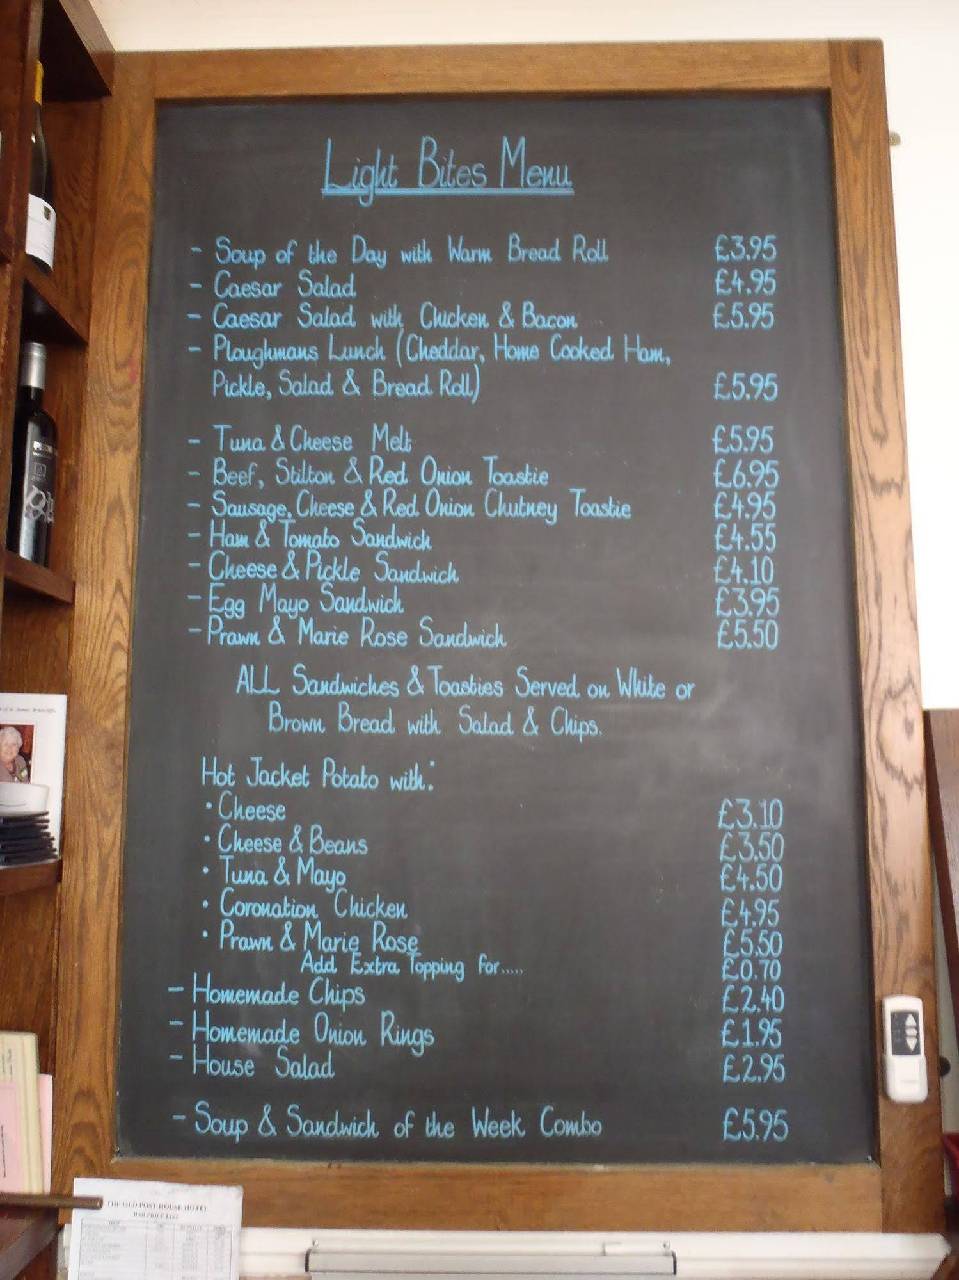 Light Bites Menu
- Soup of the Day with Warm Bread Roll £3.95
- Caesar Salad £4.95
- Caesar Salad with Chicken & Bacon £5.95
- Ploughmans Lunch (Cheddar, Home Cooked Ham,
Pickle, Salad & Bread Roll) £5.95
- Tuna & Cheese Melt £5.95
- Beef, Stilton & Red Onion Toastie £6.95
- Sausage, Cheese & Red Onion Chutney Toastie £4.95
- Ham & Tomato Sandwich £4.55
- Cheese & Pickle Sandwich £4.10
- Egg Mayo Sandwich £3.95
- Prawn & Marie Rose Sandwich £5.50
ALL Sandwiches & Toasties Served on White or
Brown Bread with Salad & Chips.
Hot Jacket Potato with:
• Cheese £3.10
• Cheese & Beans £3.50
• Tuna & Mayo £4.50
• Coronation Chicken £4.95
• Prawn & Marie Rose £5.50
Add Extra Topping for..... £0.70
- Homemade Chips £2.40
- Homemade Onion Rings £1.95
- House Salad £2.95
- Soup & Sandwich of the Week Combo £5.95
THE OLD POST HOUSE HOTEL